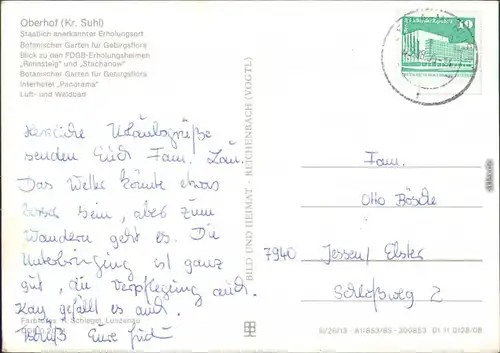 Oberhof (Kr. Suhl)
Staatlich anerkannter Erholungsort
Botanischer Garten für Gebirgsflora
Blick zu den FDGB-Erholungsheimen
"Rennsteig" und "Stachanow"
Botanischer Garten für Gebirgsflora
Interhotel "Panorama"
Luft- und Waldbad
Herzliche Urlaubsgrüße
senden Euch Fam. Lau.
Das Wetter könnte etwas
besser sein, aber zum
Wandern geht es. Die
Unterbringung ist ganz
gut, die Verpflegung auch.
Kay gefällt es auch.
Farbfotos: H. Schlegel, Lunzenau
Eure
BILD UND HEIMAT · REICHENBACH (VOGTL)
10
Fam.
Otto Böside
7940 Jessen/Elster
Schloßweg 2
9/26/13 A1/853/85-200853 01 11 0128/08